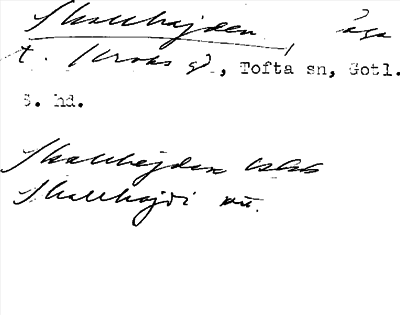 Skallhajden, äga
t. Kroks gd, Tofta sn, Gotl.
S. hd.
Skallhejden
Skallhajdi